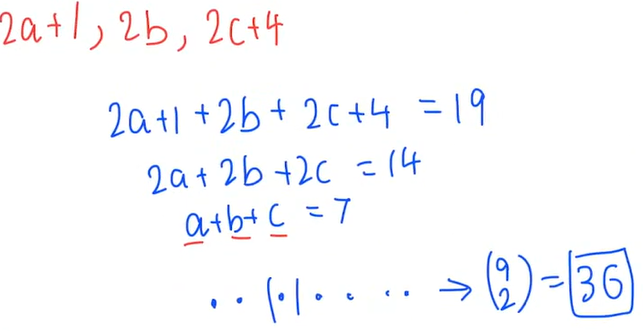 2a+1, 2b, 2c+4
2a+1+2b+2c+4 = 19
2a+2b+2c = 14
a+b+c = 7
..|.|.... → (9 2) = 36